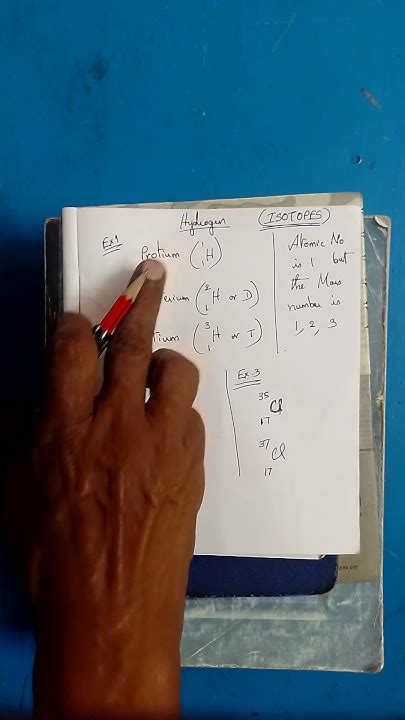 Hydrogen (ISOTOPES)
Ex1
Protium (¹₁H)
erium (²₁H or D)
tium (³₁H or T)
Atomic No
is 1 but
the Mass
number is
1, 2, 3
Ex.3
³⁵₁₇Cl
³⁷₁₇Cl